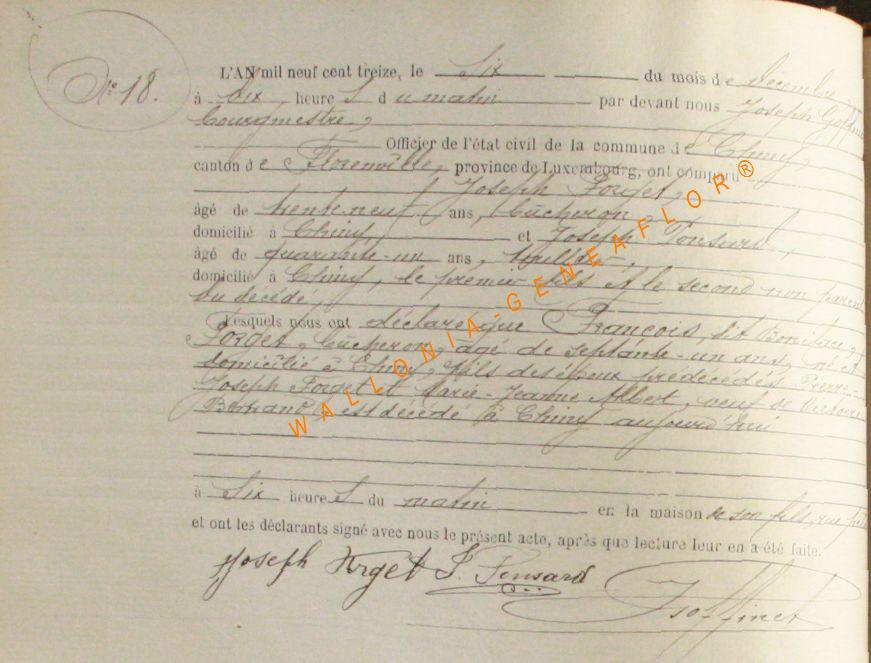 N° 18.
L'AN mil neuf cent treize, le Six du mois de Décembre
à dix heures du matin par devant nous Joseph Goffinet
bourgmestre,
Officier de l'état civil de la commune de Chiny,
canton de Florenville, province de Luxembourg, ont comparu
Joseph Forget,
âgé de trente-neuf ans, bûcheron,
domicilié à Chiny, et Joseph Ponsard,
âgé de quarante-un ans,
domicilié à Chiny, le premier fils et le second non parent
du décédé,
Lesquels nous ont déclaré que François, dit Boniface,
Forget, bûcheron, âgé de septante-un ans, né et
domicilié à Chiny, fils des époux prédécédés Pierre-
Joseph Forget et Marie-Jeanne Albert, veuf de Victoire
Bertrand est décédé à Chiny aujourd'hui
à Six heures du matin en la maison de son fils, rue
et ont les déclarants signé avec nous le présent acte, après que lecture leur en a été faite.
Joseph Forget J. Ponsard
JGoffinet
WALLONIA-GENEAFLOR®